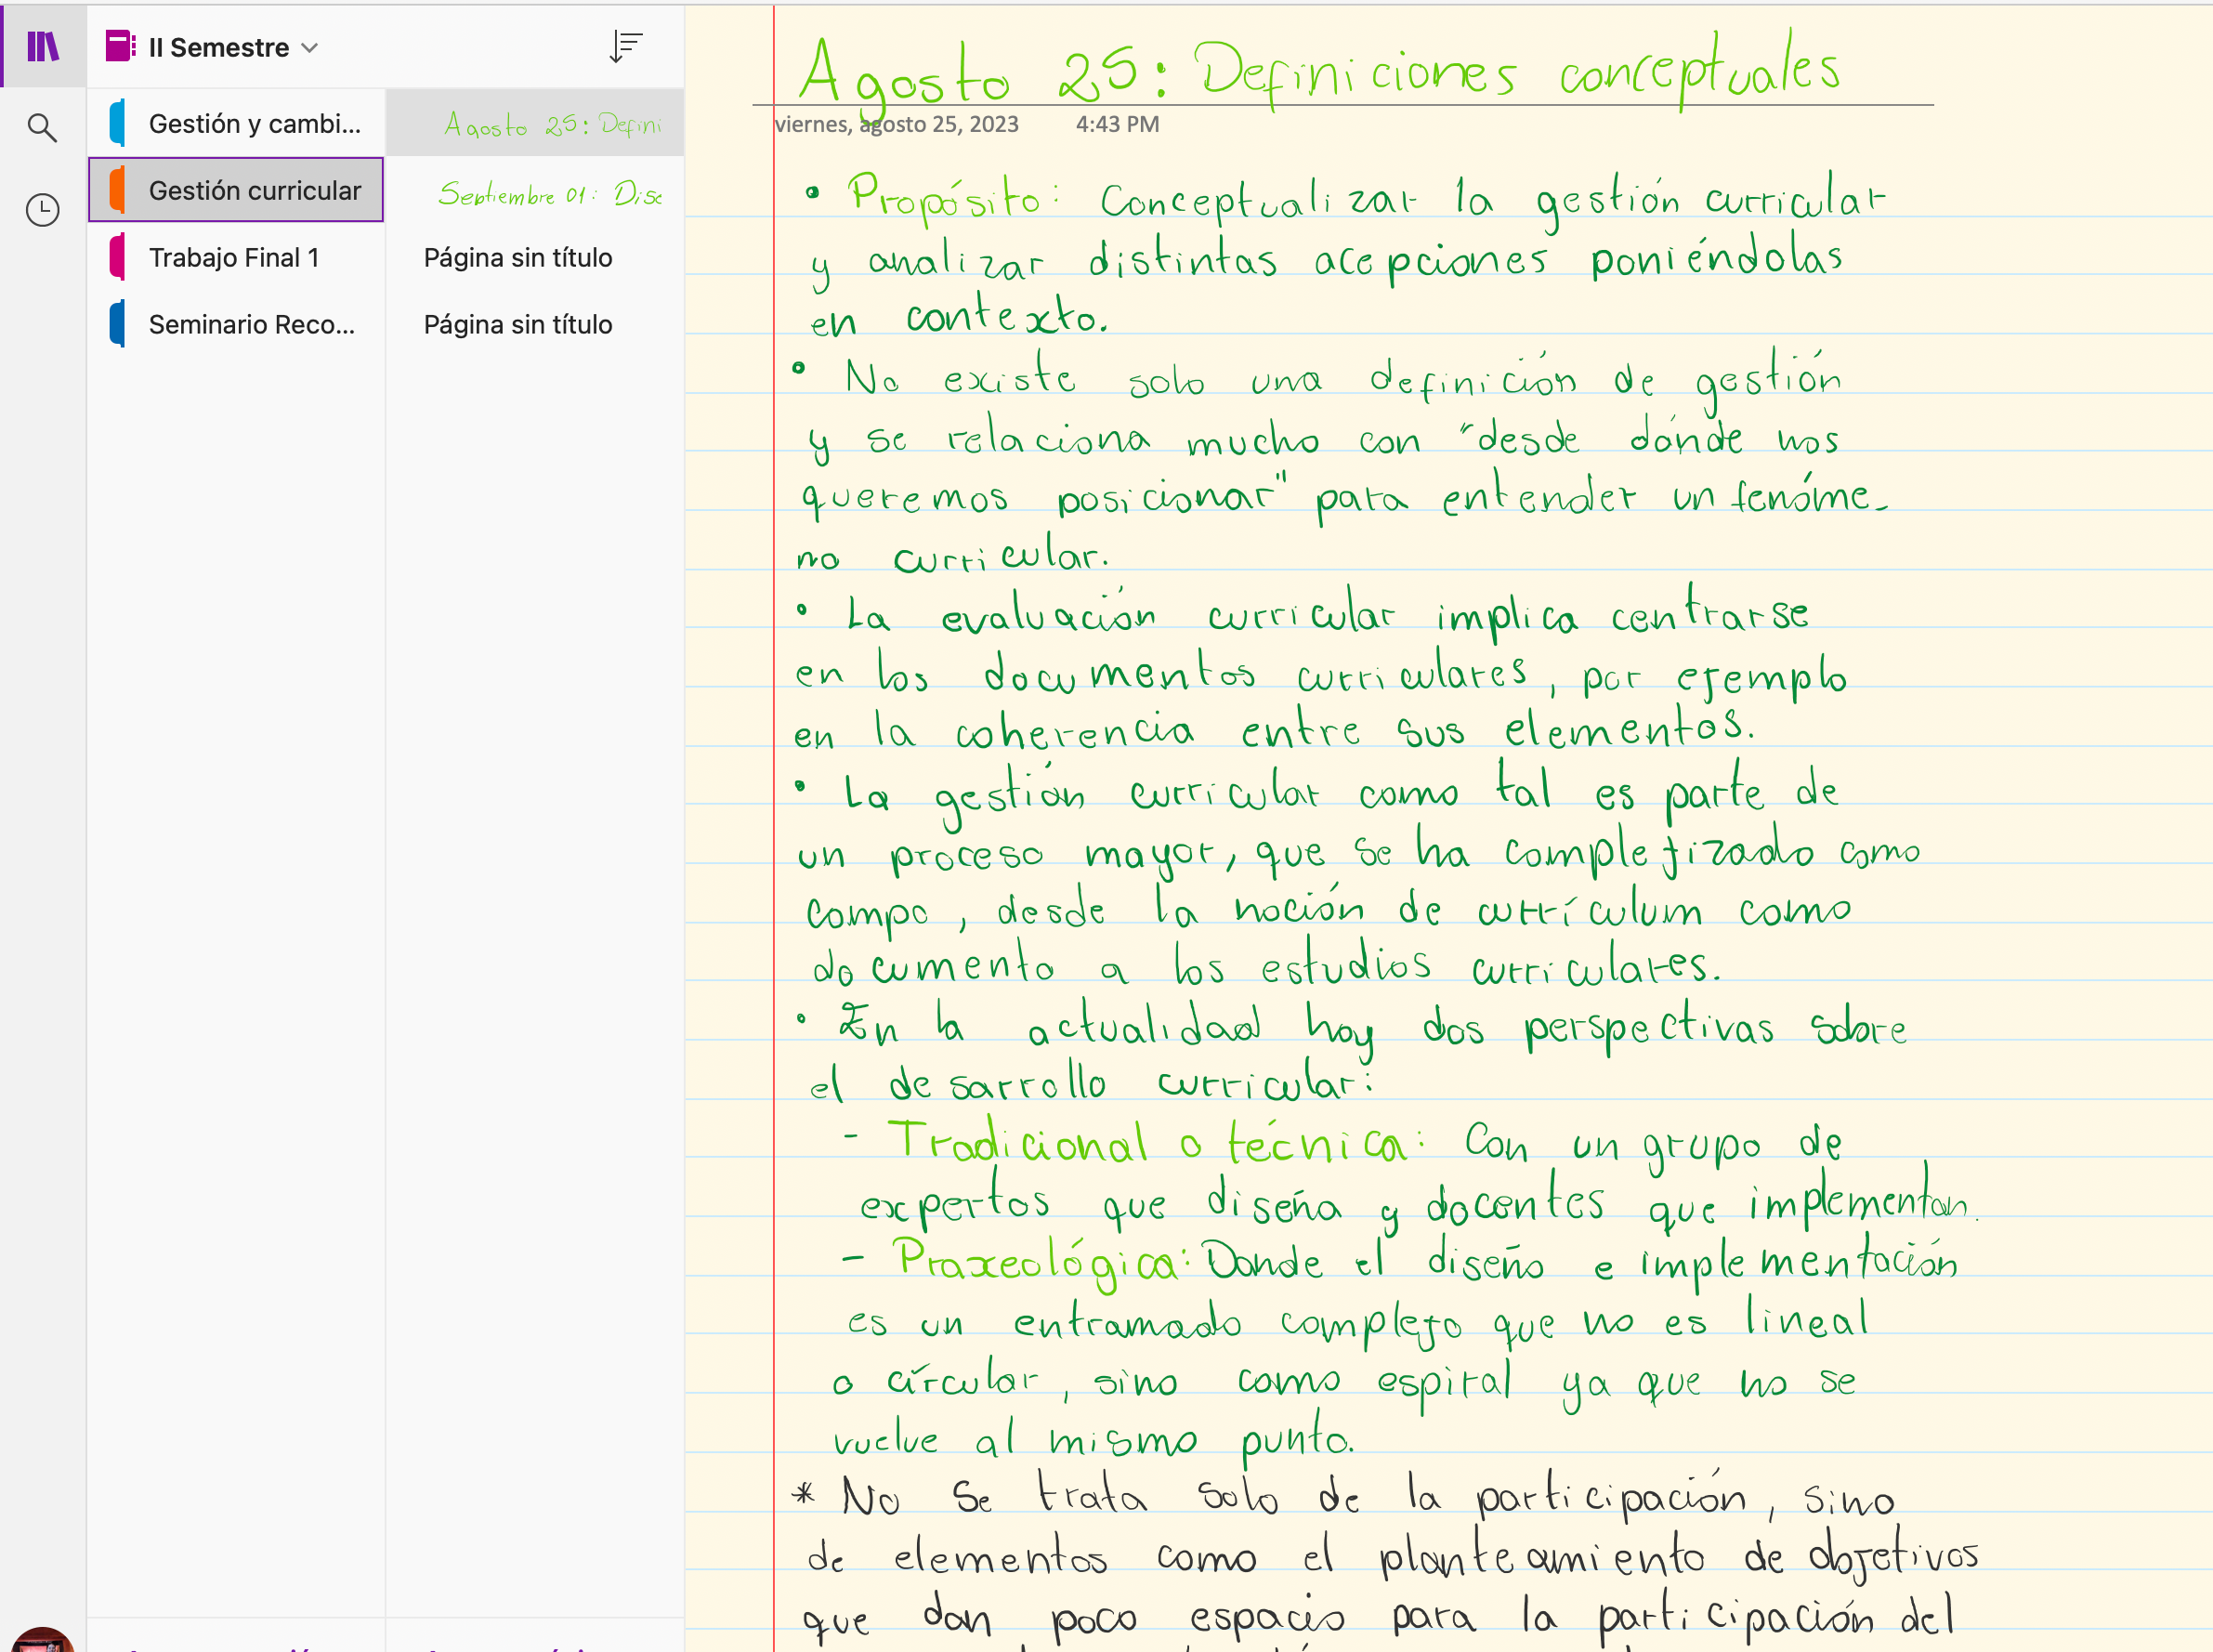 II Semestre
Gestión y cambi...
Gestión curricular
Trabajo Final 1
Seminario Reco...
Agosto 25: Defini
Septiembre 01: Dise
Página sin título
Página sin título
Agosto 25: Definiciones conceptuales
viernes, agosto 25, 2023 4:43 PM
• Propósito: Conceptualizar la gestión curricular
y analizar distintas acepciones poniéndolas
en contexto.
• No existe solo una definición de gestión
y se relaciona mucho con "desde dónde nos
queremos posicionar" para entender un fenóme-
no curricular.
• La evaluación curricular implica centrarse
en los documentos curriculares, por ejemplo
en la coherencia entre sus elementos.
• La gestión curricular como tal es parte de
un proceso mayor, que se ha complejizado como
campo, desde la noción de currículum como
documento a los estudios curriculares.
• En la actualidad hay dos perspectivas sobre
el desarrollo curricular:
- Tradicional o técnica: Con un grupo de
expertos que diseña y docentes que implementan.
- Praxeológica: Donde el diseño e implementación
es un entramado complejo que no es lineal
o círcular, sino como espiral ya que no se
vuelve al mismo punto.
* No se trata solo de la participación, sino
de elementos como el planteamiento de objetivos
que dan poco espacio para la participación del